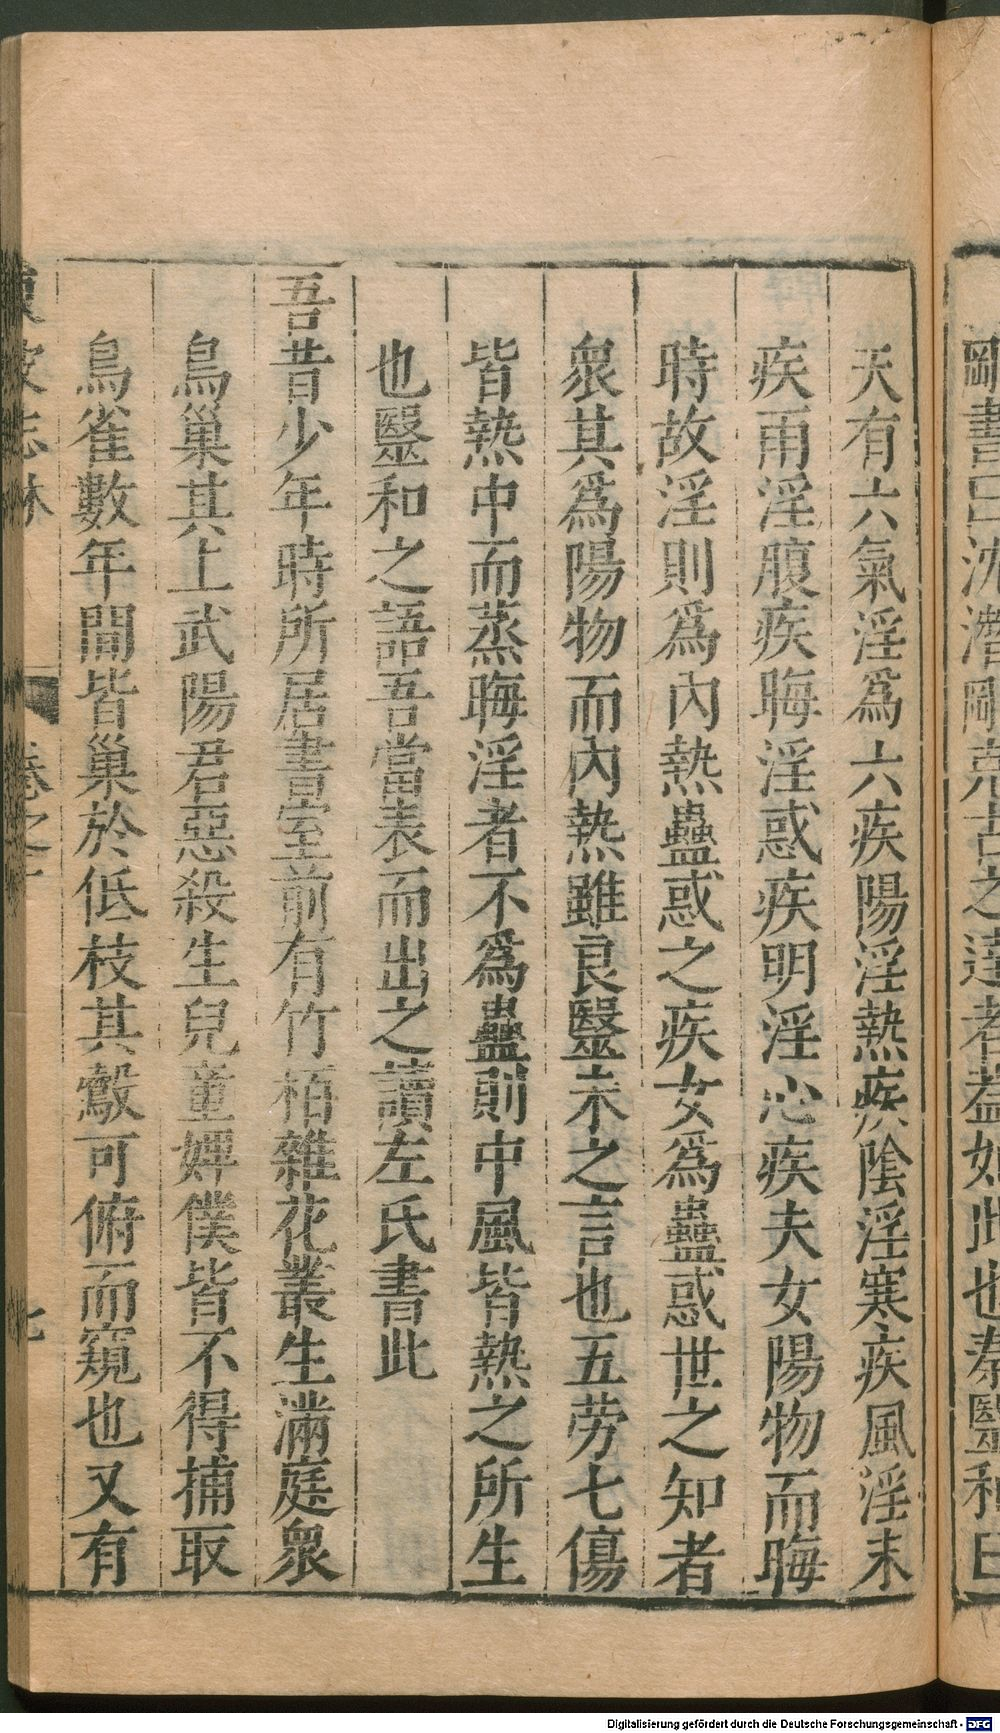 剛書曰沈潛剛克古之達者蓋如此也秦醫和曰
天有六氣淫爲六疾陽淫熱疾陰淫寒疾風淫末
疾雨淫腹疾晦淫惑疾明淫心疾夫女陽物而晦
時故淫則爲內熱蠱惑之疾女爲蠱惑世之知者
衆其爲陽物而內熱雖良醫未之言也五勞七傷
皆熱中而蒸晦淫者不爲蠱則中風皆熱之所生
也醫和之語吾當表而出之讀左氏書此
吾昔少年時所居書室前有竹栢雜花叢生滿庭衆
鳥巢其上武陽君惡殺生兒童婢僕皆不得捕取
鳥雀數年間皆巢於低枝其鷇可俯而窺也又有
志林
卷之
七
Digitalisierung gefördert durch die Deutsche Forschungsgemeinschaft - DFG